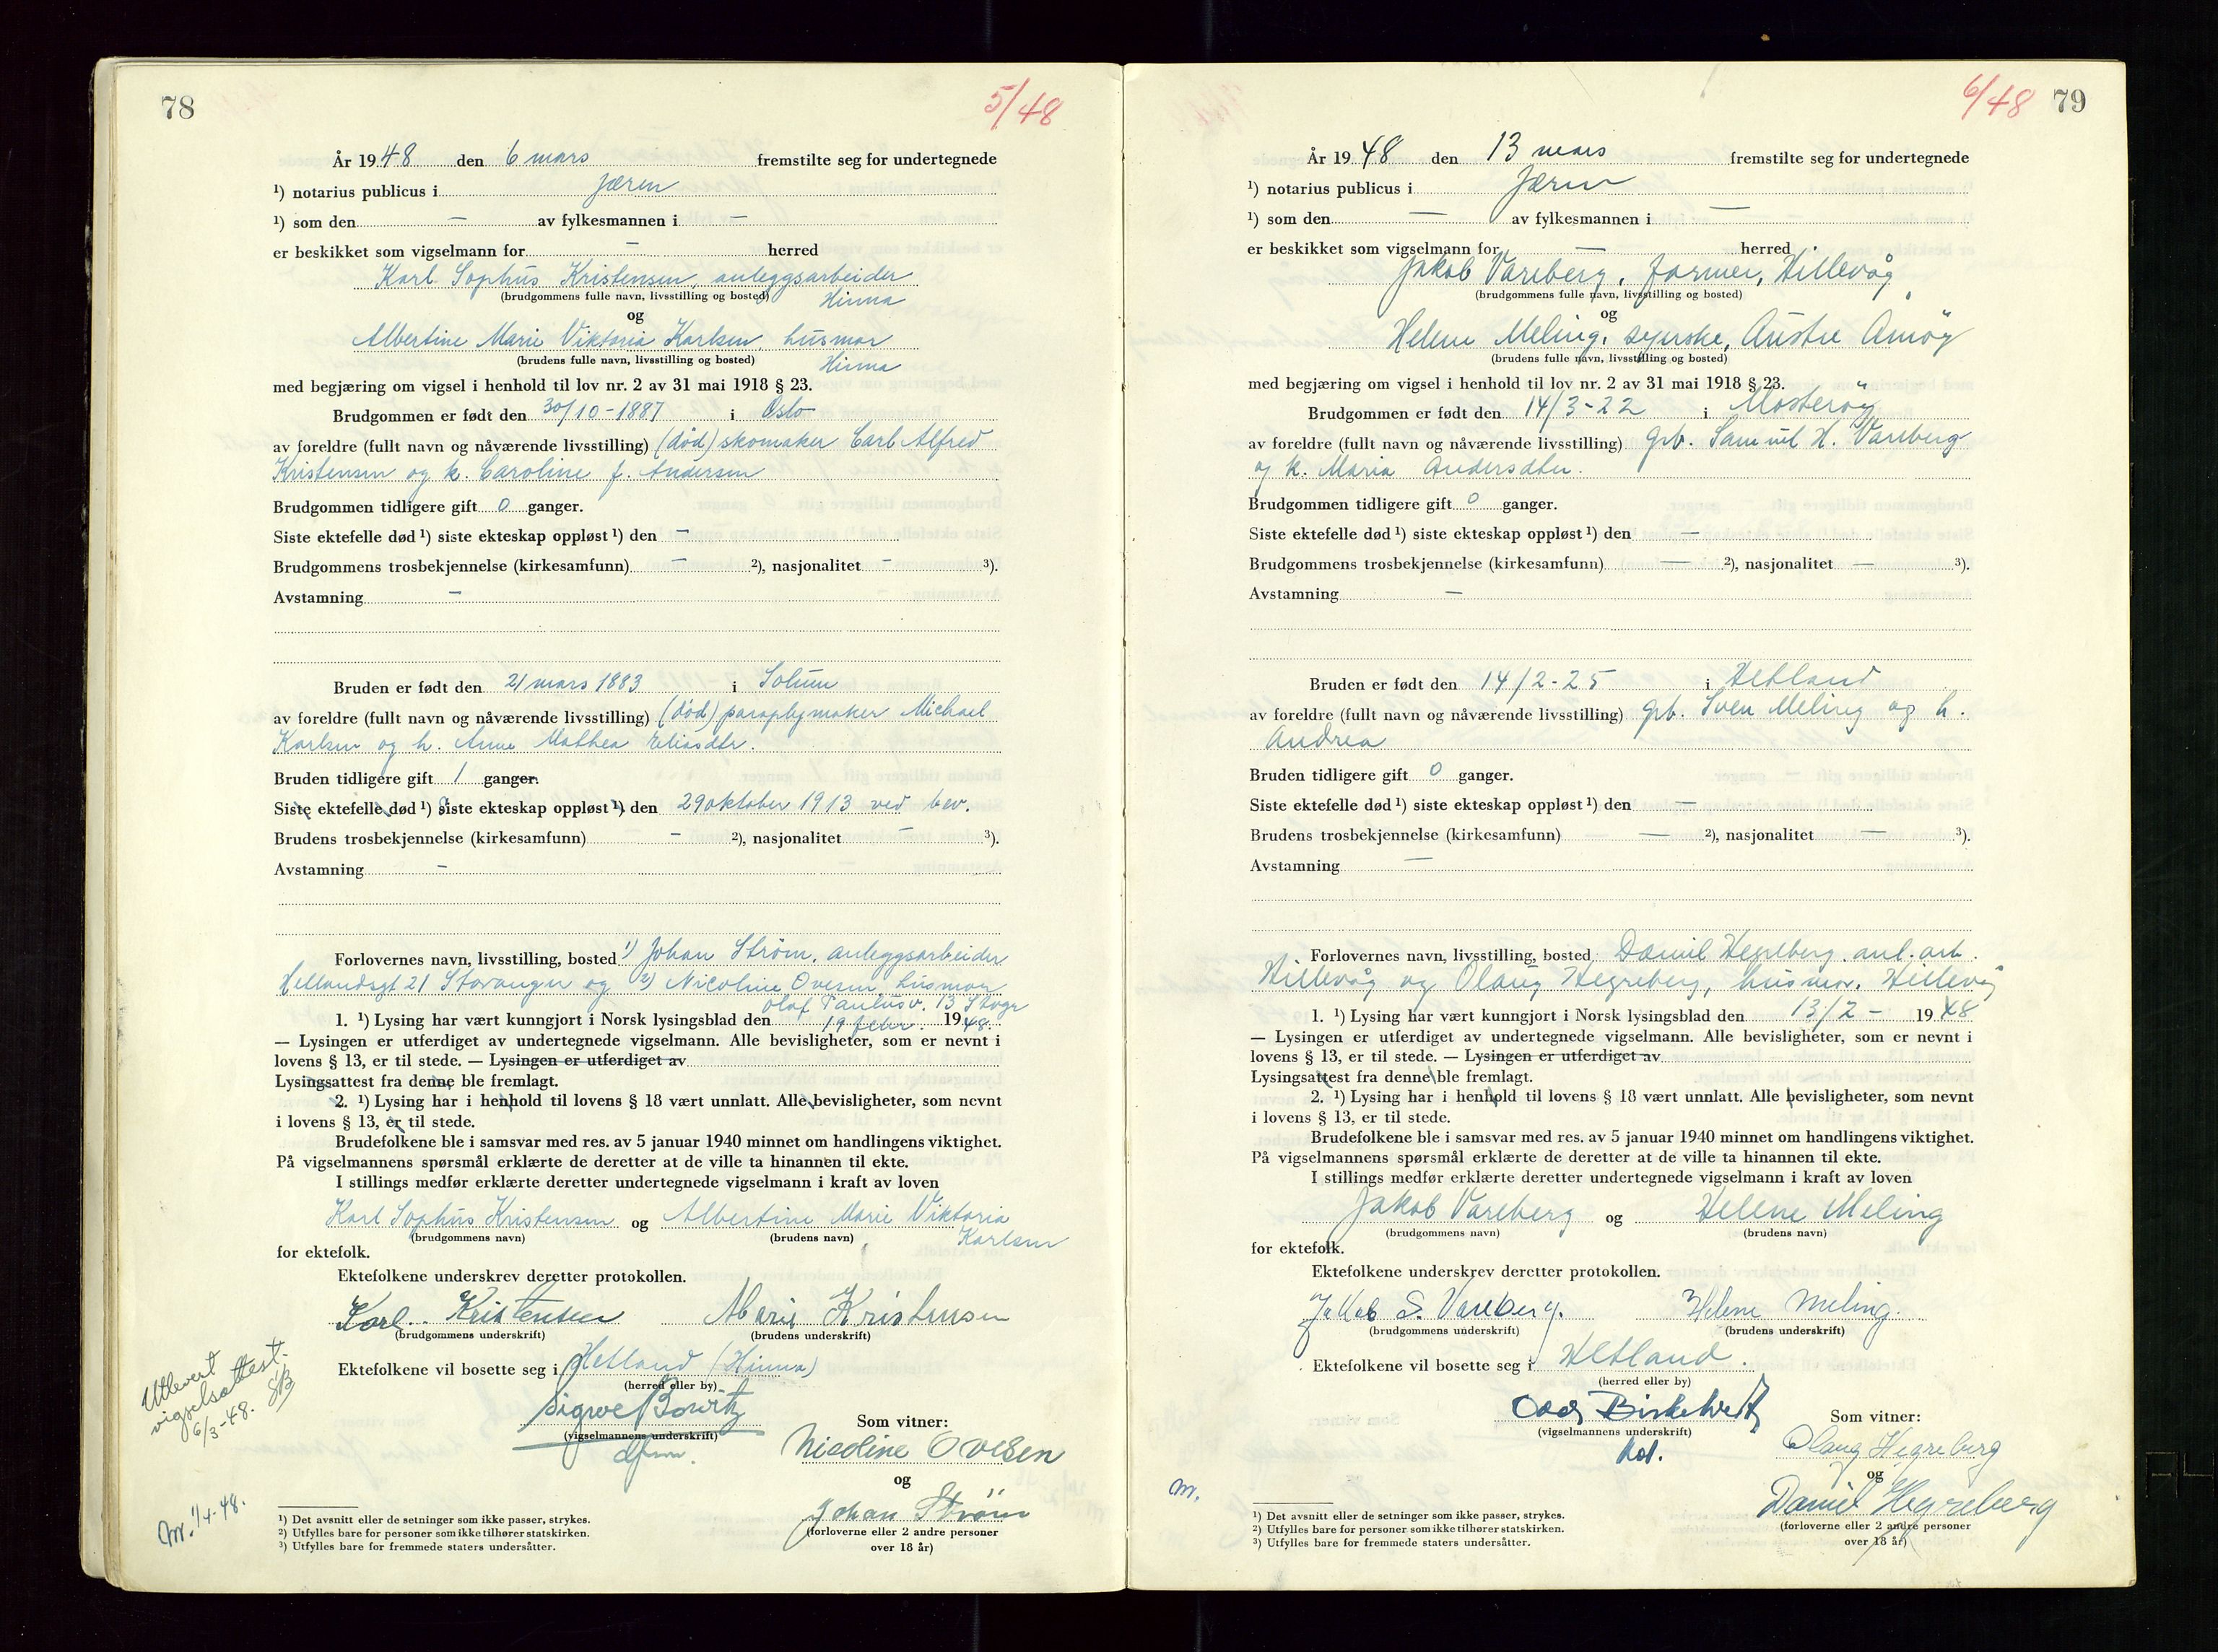 78
5/48
År 1948 den 6 mars fremstilte seg for undertegnede
¹) notarius publicus i Jæren
¹) som den — av fylkesmannen i —
er beskikket som vigselmann for — herred
Karl Sophus Kristensen, anleggsarbeider
(brudgommens fulle navn, livsstilling og bosted) Hinna
og
Albertine Marie Viktoria Karlsen, husmor
(brudens fulle navn, livsstilling og bosted) Hinna
med begjæring om vigsel i henhold til lov nr. 2 av 31 mai 1918 § 23.
Brudgommen er født den 30/10-1887 i Oslo
av foreldre (fullt navn og nåværende livsstilling) (død) skomaker Carl Alfred
Kristensen og k. Caroline f. Andersen
Brudgommen tidligere gift 0 ganger.
Siste ektefelle død ¹) siste ekteskap oppløst ¹) den —
Brudgommens trosbekjennelse (kirkesamfunn) — ²), nasjonalitet — ³).
Avstamning —
Bruden er født den 21 mars 1883 i Solum
av foreldre (fullt navn og nåværende livsstilling) (død) paraplymaker Michael
Karlsen og h. Anne Mathea Eliasdtr.
Bruden tidligere gift 1 ganger.
Siste ektefelle død ¹) Siste ekteskap oppløst ¹) den 29 oktober 1913 ved bev.
Brudens trosbekjennelse (kirkesamfunn) — ²), nasjonalitet — ³).
Avstamning —
Forlovernes navn, livsstilling, bosted 1) Johan Strøm, anleggsarbeider
Hellandsgt 21 Stavanger og 2) Nicoline Ovesen, husmor
Olaf Paulusv. 13 Stvgr
1. ¹) Lysing har vært kunngjort i Norsk lysingsblad den 19 febr. 1948.
— Lysingen er utferdiget av undertegnede vigselmann. Alle bevisligheter, som er nevnt i
lovens § 13, er til stede. — Lysingen er utferdiget av
Lysingsattest fra denne ble fremlagt.
2. ¹) Lysing har i henhold til lovens § 18 vært unnlatt. Alle bevisligheter, som nevnt
i lovens § 13, er til stede.
Brudefolkene ble i samsvar med res. av 5 januar 1940 minnet om handlingens viktighet.
På vigselmannens spørsmål erklærte de deretter at de ville ta hinannen til ekte.
I stillings medfør erklærte deretter undertegnede vigselmann i kraft av loven
Karl Sophus Kristensen og Albertine Marie Viktoria
(brudgommens navn) (brudens navn) Karlsen
for ektefolk.
Ektefolkene underskrev deretter protokollen.
Karl Kristensen Marie Kristensen
(brudgommens underskrift) (brudens underskrift)
Ektefolkene vil bosette seg i Hetland (Hinna)
(herred eller by)
Utlevert
vigselsattest.
6/3-48.
(vigselmannens underskrift)
Som vitner:
Nicoline Ovesen
og
Johan Strøm
(forloverne eller 2 andre personer
over 18 år)
M. 1/4-48.
¹) Det avsnitt eller de setninger som ikke passer, strykes.
²) Utfylles bare for personer som ikke tilhører statskirken.
³) Utfylles bare for fremmede staters undersåtter.
6/48 79
År 1948 den 13 mars fremstilte seg for undertegnede
¹) notarius publicus i Jæren
¹) som den — av fylkesmannen i —
er beskikket som vigselmann for — herred
Jakob Vareberg, former, Hillevåg
(brudgommens fulle navn, livsstilling og bosted)
og
Helene Meling, syerske, Austre Åmøy
(brudens fulle navn, livsstilling og bosted)
med begjæring om vigsel i henhold til lov nr. 2 av 31 mai 1918 § 23.
Brudgommen er født den 14/3-22 i Mosterøy
av foreldre (fullt navn og nåværende livsstilling) grb. Samuel H. Vareberg
og k. Maria Andersdtr.
Brudgommen tidligere gift 0 ganger.
Siste ektefelle død ¹) siste ekteskap oppløst ¹) den —
Brudgommens trosbekjennelse (kirkesamfunn) — ²), nasjonalitet — ³).
Avstamning —
Bruden er født den 14/2-25 i Hetland
av foreldre (fullt navn og nåværende livsstilling) grb. Sven Meling og h.
Andrea
Bruden tidligere gift 0 ganger.
Siste ektefelle død ¹) siste ekteskap oppløst ¹) den —
Brudens trosbekjennelse (kirkesamfunn) — ²), nasjonalitet — ³).
Avstamning —
Forlovernes navn, livsstilling, bosted Daniel Hegreberg, anl. arb.
Hillevåg og Olaug Hegreberg, husmor, Hillevåg
1. ¹) Lysing har vært kunngjort i Norsk lysingsblad den 13/2 - 1948
— Lysingen er utferdiget av undertegnede vigselmann. Alle bevisligheter, som er nevnt i
lovens § 13, er til stede. — Lysingen er utferdiget av
Lysingsattest fra denne ble fremlagt.
2. ¹) Lysing har i henhold til lovens § 18 vært unnlatt. Alle bevisligheter, som nevnt
i lovens § 13, er til stede.
Brudefolkene ble i samsvar med res. av 5 januar 1940 minnet om handlingens viktighet.
På vigselmannens spørsmål erklærte de deretter at de ville ta hinannen til ekte.
I stillings medfør erklærte deretter undertegnede vigselmann i kraft av loven
Jakob Vareberg og Helene Meling
(brudgommens navn) (brudens navn)
for ektefolk.
Ektefolkene underskrev deretter protokollen.
Jakob S. Vareberg. Helene Meling.
(brudgommens underskrift) (brudens underskrift)
Ektefolkene vil bosette seg i Hetland.
(herred eller by)
Odd
(vigselmannens underskrift)
Som vitner:
Olaug Hegreberg
og
Daniel Hegreberg
(forloverne eller 2 andre personer
over 18 år)
M.
¹) Det avsnitt eller de setninger som ikke passer, strykes.
²) Utfylles bare for personer som ikke tilhører statskirken.
³) Utfylles bare for fremmede staters undersåtter.